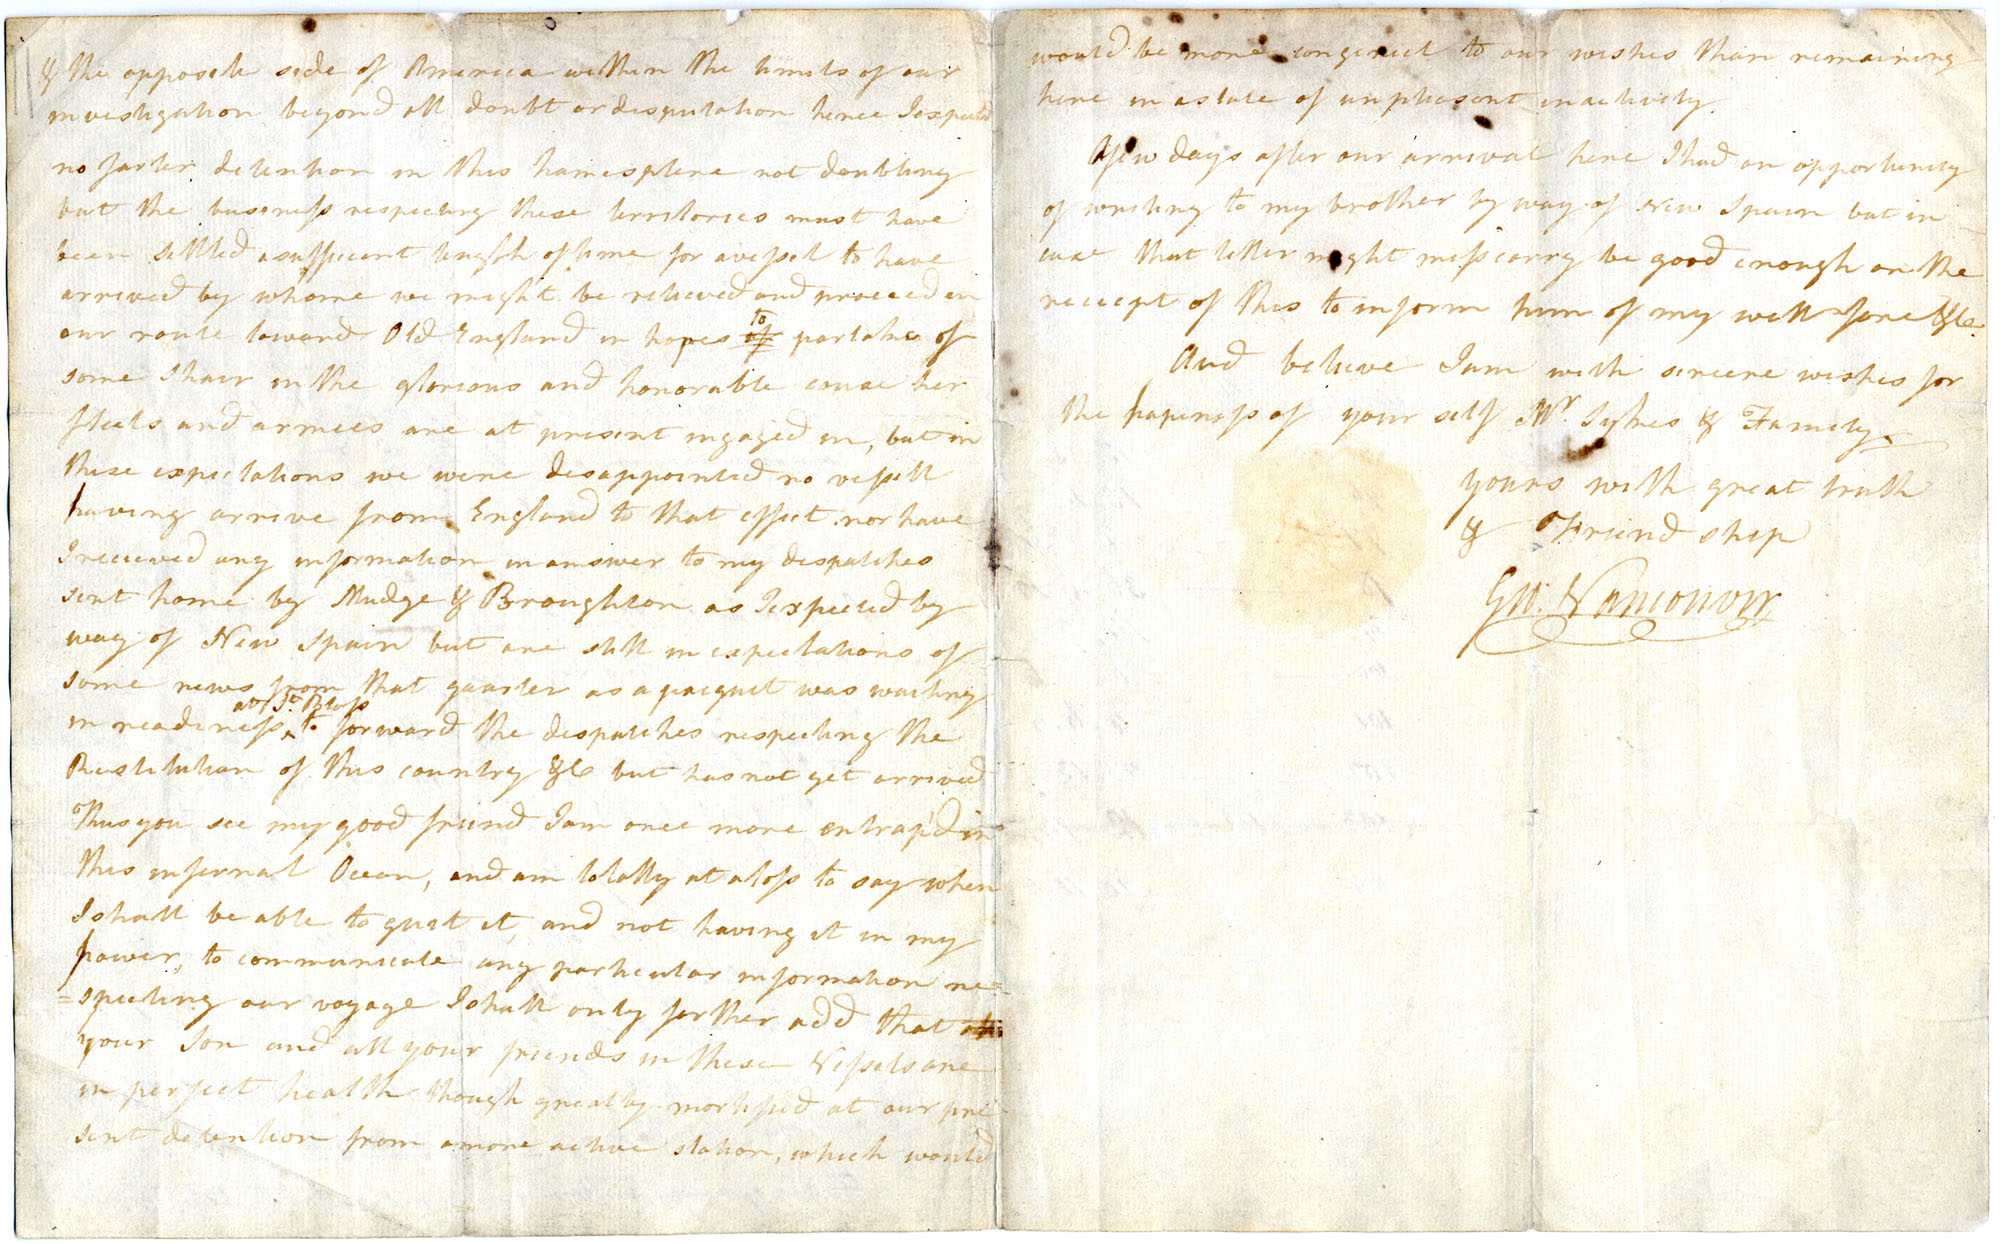 & the opposite side of America within the limits of our
investigation beyond all doubt or disputation hence I expected
no farter detention in this hamisphere not doubting
but the business respecting these territories must have
been settled a sufficient length of time for a vessel to have
arrived by whome we might be relieved and proceed on
our route toward Old England in hopes of to partake of
some shair in the glorious and honorable cause her
fleets and armees are at present ingaged in, but in
these expectations we were desappointed no vessell
having arrive from England to that effect nor have
I recieved any information in answer to my despatches
sent home by Mudge & Broughton as I expected by
way of New Spain but are still in expectations of
some news from that quarter as a pacquet was waiting
in readiness at St. Blass to forward the despatches respecting the
Restitution of this country &c but has not yet arrived
Thus you see my good friend I am once more entrap'd in
this infernal Ocean, and am totally at a loss to say when
I shall be able to quit it, and not having it in my
power, to communicate any particular information re=
=specting our voyage I shall only forther add that
your Son and all your friends in these Vessels are
in perfect health though greatly mortified at our pre=
sent detention from a more active station, which would
would be more congenial to our wishes than remaining
here in a state of unpleasent inactivity.
A few days after our arrival here I had an opportunity
of writing to my brother by way of New Spain but in
case that letter might misscarry be good enough on the
receept of this to inform him of my well fare &c.
And believe I am with sincere wishes for
the hapiness of your self Mr. Sykes & Family
yours with great truth
& Friendship
Geo. Vancouver